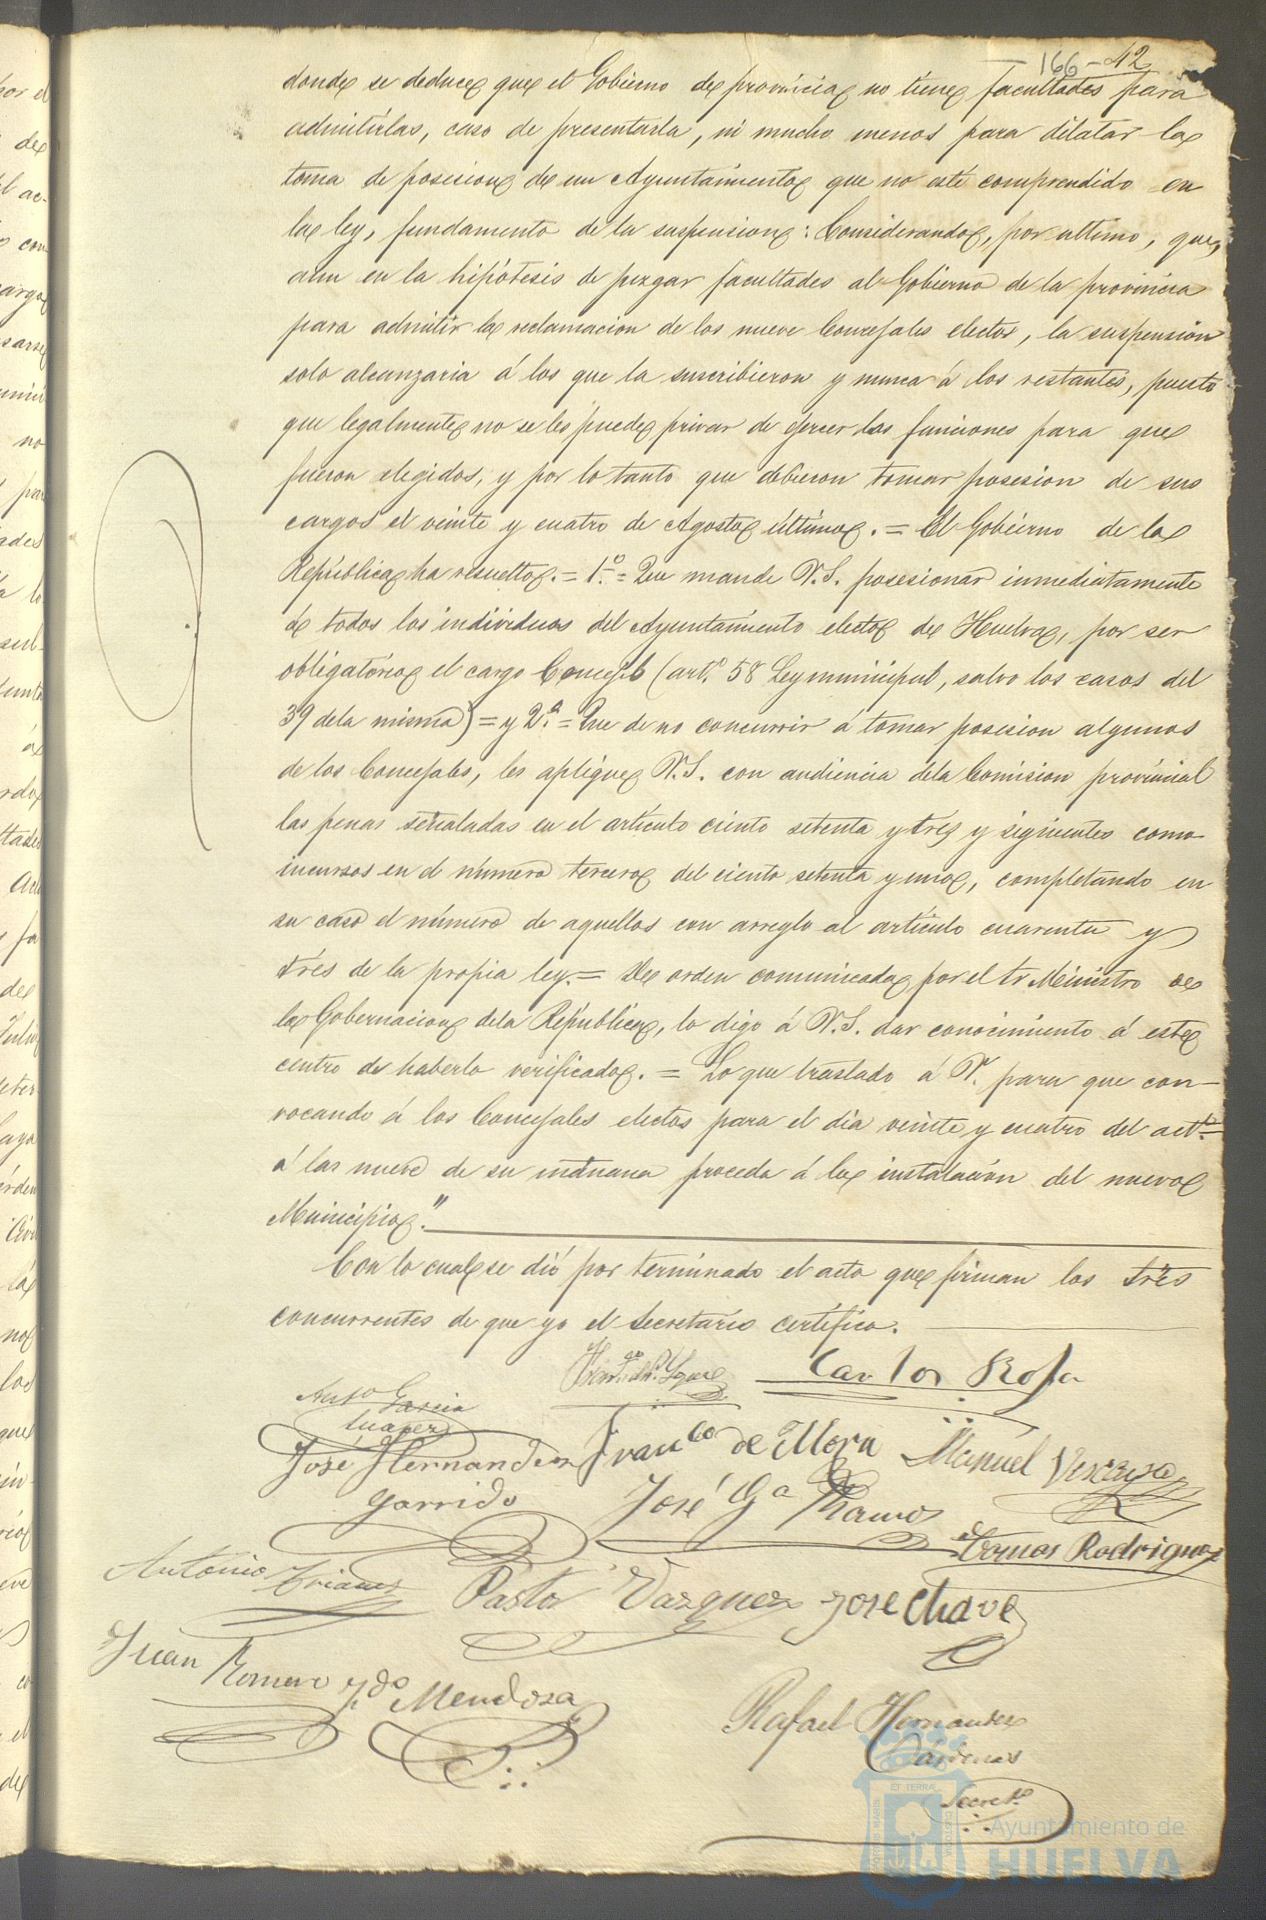 166-42
donde se deduce que el Gobierno de provincia no tiene facultades para
admitirlas, caso de presentarla, ni mucho menos para dilatar la
toma de posesion de un Ayuntamiento que no esté comprendido en
la ley, fundamento de la suspension: Considerando, por ultimo, que,
aun en la hipótesis de juzgar facultades al Gobierno de la provincia
para admitir la reclamacion de los nueve Concejales electos, la suspensión
solo alcanzaria á los que la suscribieron y nunca á los restantes, puesto
que legalmente no se les puede privar de ejercer las funciones para que
fueron elegidos, y por lo tanto que debieron tomar posesion de sus
cargos el veinte y cuatro de Agosto último. = El Gobierno de la
República ha resuelto. = 1º = Que mande V.S. posesionar inmediatamente
á todos los individuos del Ayuntamiento electo de Huelva, por ser
obligatorio el cargo Concejil (artº 58 Ley municipal, salvo los casos del
39 de la misma) = y 2ª = Que de no concurrir á tomar posesion algunos
de los Concejales, les aplique V.S. con audiencia dela Comision provincial
las penas señaladas en el artículo ciento setenta y tres y siguientes como
incursos en el número tercero del ciento setenta y uno, completando en
su caso el número de aquellos con arreglo al artículo cuarenta y
tres de la propia ley. = De orden comunicada por el Sr Ministro de
la Gobernacion dela República, lo digo á V.S. dar conocimiento á este
centro de haberlo verificado. = Lo que traslado á V. para que con-
vocando á los Concejales electos para el dia veinte y cuatro del actl
á las nueve de su mañana proceda á la instalación del nuevo
Municipio."
Con lo cual se dió por terminado el acto que firman los tres
concurrentes de que yo el Secretario certifico.
Carlos Rofa
Garcia
Suarez
José Hernandez Franco de Mora Manuel
Garrido José Ga Ramos
Tomas Rodriguez
Antonio Trianes Pastor Vazquez Jose Chave
Juan Romero
Mendosa
Rafael Hernandez
Cárdenas
Secreto
ET TERRÆ
Ayuntamiento de
HUELVA